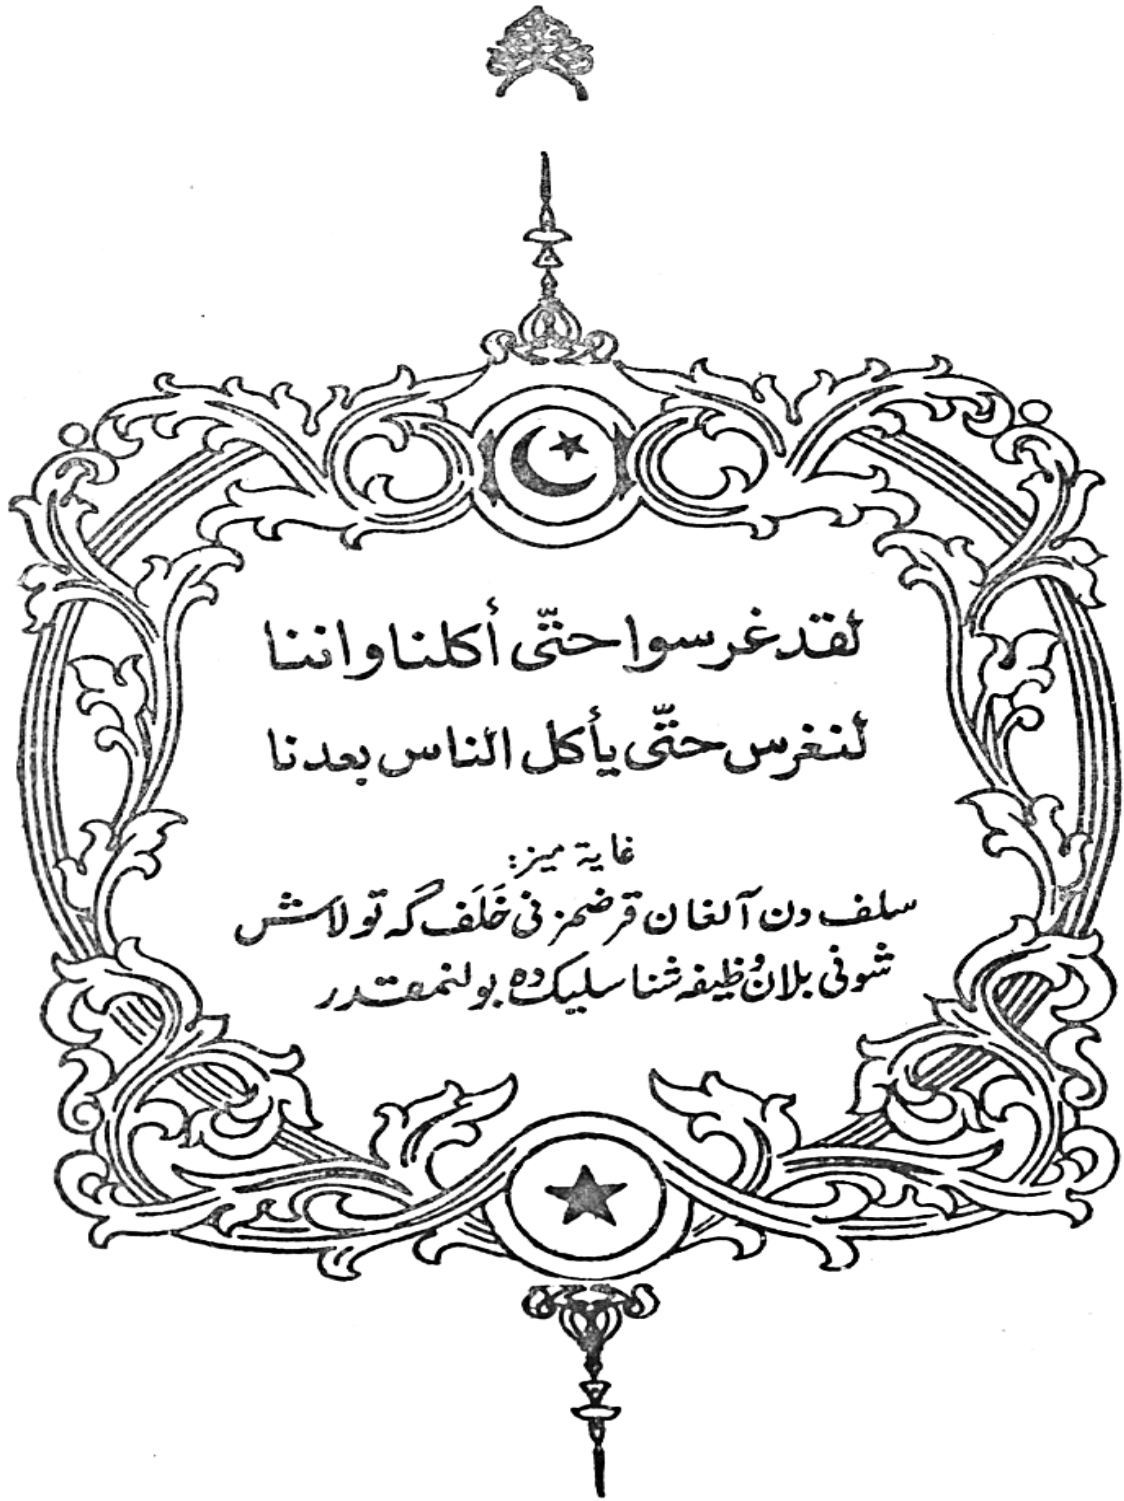 لقد غرسوا حتّى أكلنا واننا
لنغرس حتّى يأكل الناس بعدنا
غاية ميز:
سلف دن آلغان قرضمز نى خَلَف گه تولاش
شونى بلان وُظيفه شناسليك ده بولنمقدر